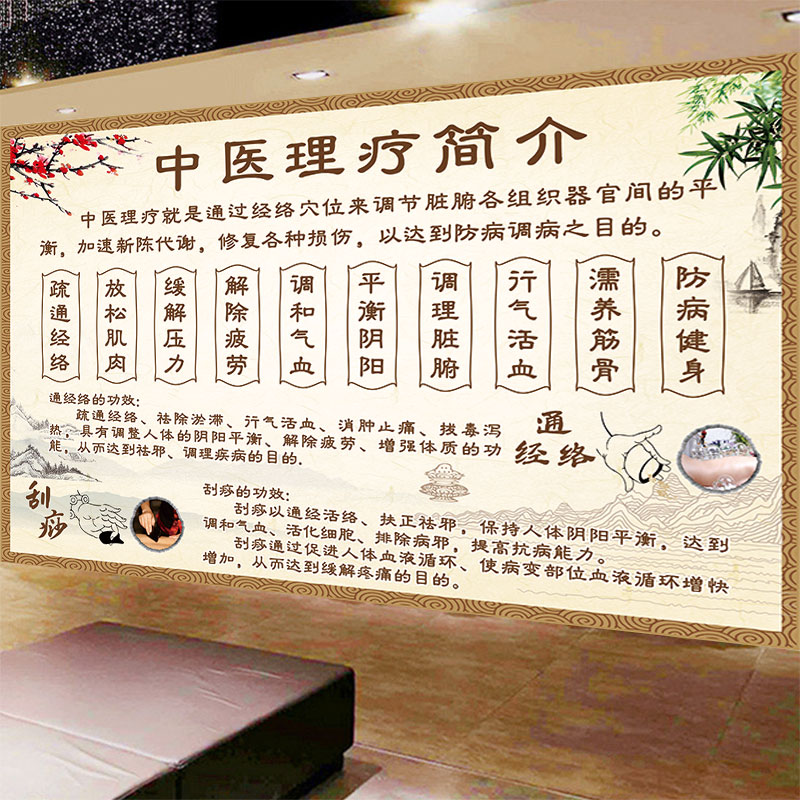 中医理疗简介
中医理疗就是通过经络穴位来调节脏腑各组织器官间的平
衡，加速新陈代谢，修复各种损伤，以达到防病调病之目的。
疏通经络
放松肌肉
缓解压力
解除疲劳
调和气血
平衡阴阳
调理脏腑
行气活血
濡养筋骨
防病健身
通经络的功效:
疏通经络、祛除淤滞、行气活血、消肿止痛、拨毒泻
热，具有调整人体的阴阳平衡、解除疲劳、增强体质的功
能，从而达到祛邪、调理疾病的目的.
通
经络
刮痧
刮痧的功效:
刮痧以通经活络、扶正祛邪，保持人体阴阳平衡，达到
调和气血、活化细胞、排除病邪，提高抗病能力。
刮痧通过促进人体血液循环、使病变部位血液循环增快
增加，从而达到缓解疼痛的目的。